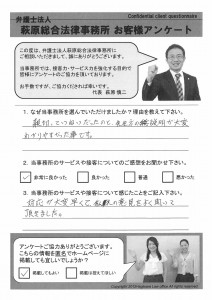 Confidential client questionnaire
弁護士法人
萩原総合法律事務所 お客様アンケート
この度は、弁護士法人萩原総合法律事務所に
ご相談いただきまして、誠にありがとうございます。
当事務所では、接客力・サービス力を強化する目的で
皆様にアンケートのご協力をお願いしております。
お手数ですが、ご協力くだされば幸いです。
代表 萩原 慎二
1. なぜ当事務所を選んでいただけましたか?理由を教えて下さい。
わかりやすかった事です。
2. 当事務所のサービスや接客についてのご感想をお聞かせ下さい。
非常に良かった 良かった 普通 悪かった
3. 当事務所のサービスや接客について感じたことをご記入下さい。
対応が大変早くて
頂きました。
アンケートご協力ありがとうございます。
こちらの情報を匿名でホームページに
掲載しても宜しいでしょうか?
掲載してもよい 掲載は控えてほしい